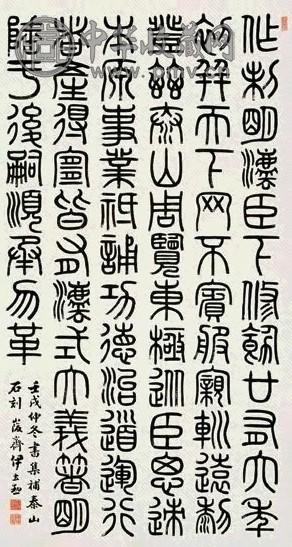 作制明灋臣下修飭廿有六年
初并天下网不賓服親軓遠黎
登茲泰山周覽東極從臣思迹
本原事業祗誦功德治道運行
者產得宜皆有灋式大義箸明
陲于後嗣順承勿革
壬戌仲冬書集補泰山
石刻 峻齋伊立勳
中华收藏网